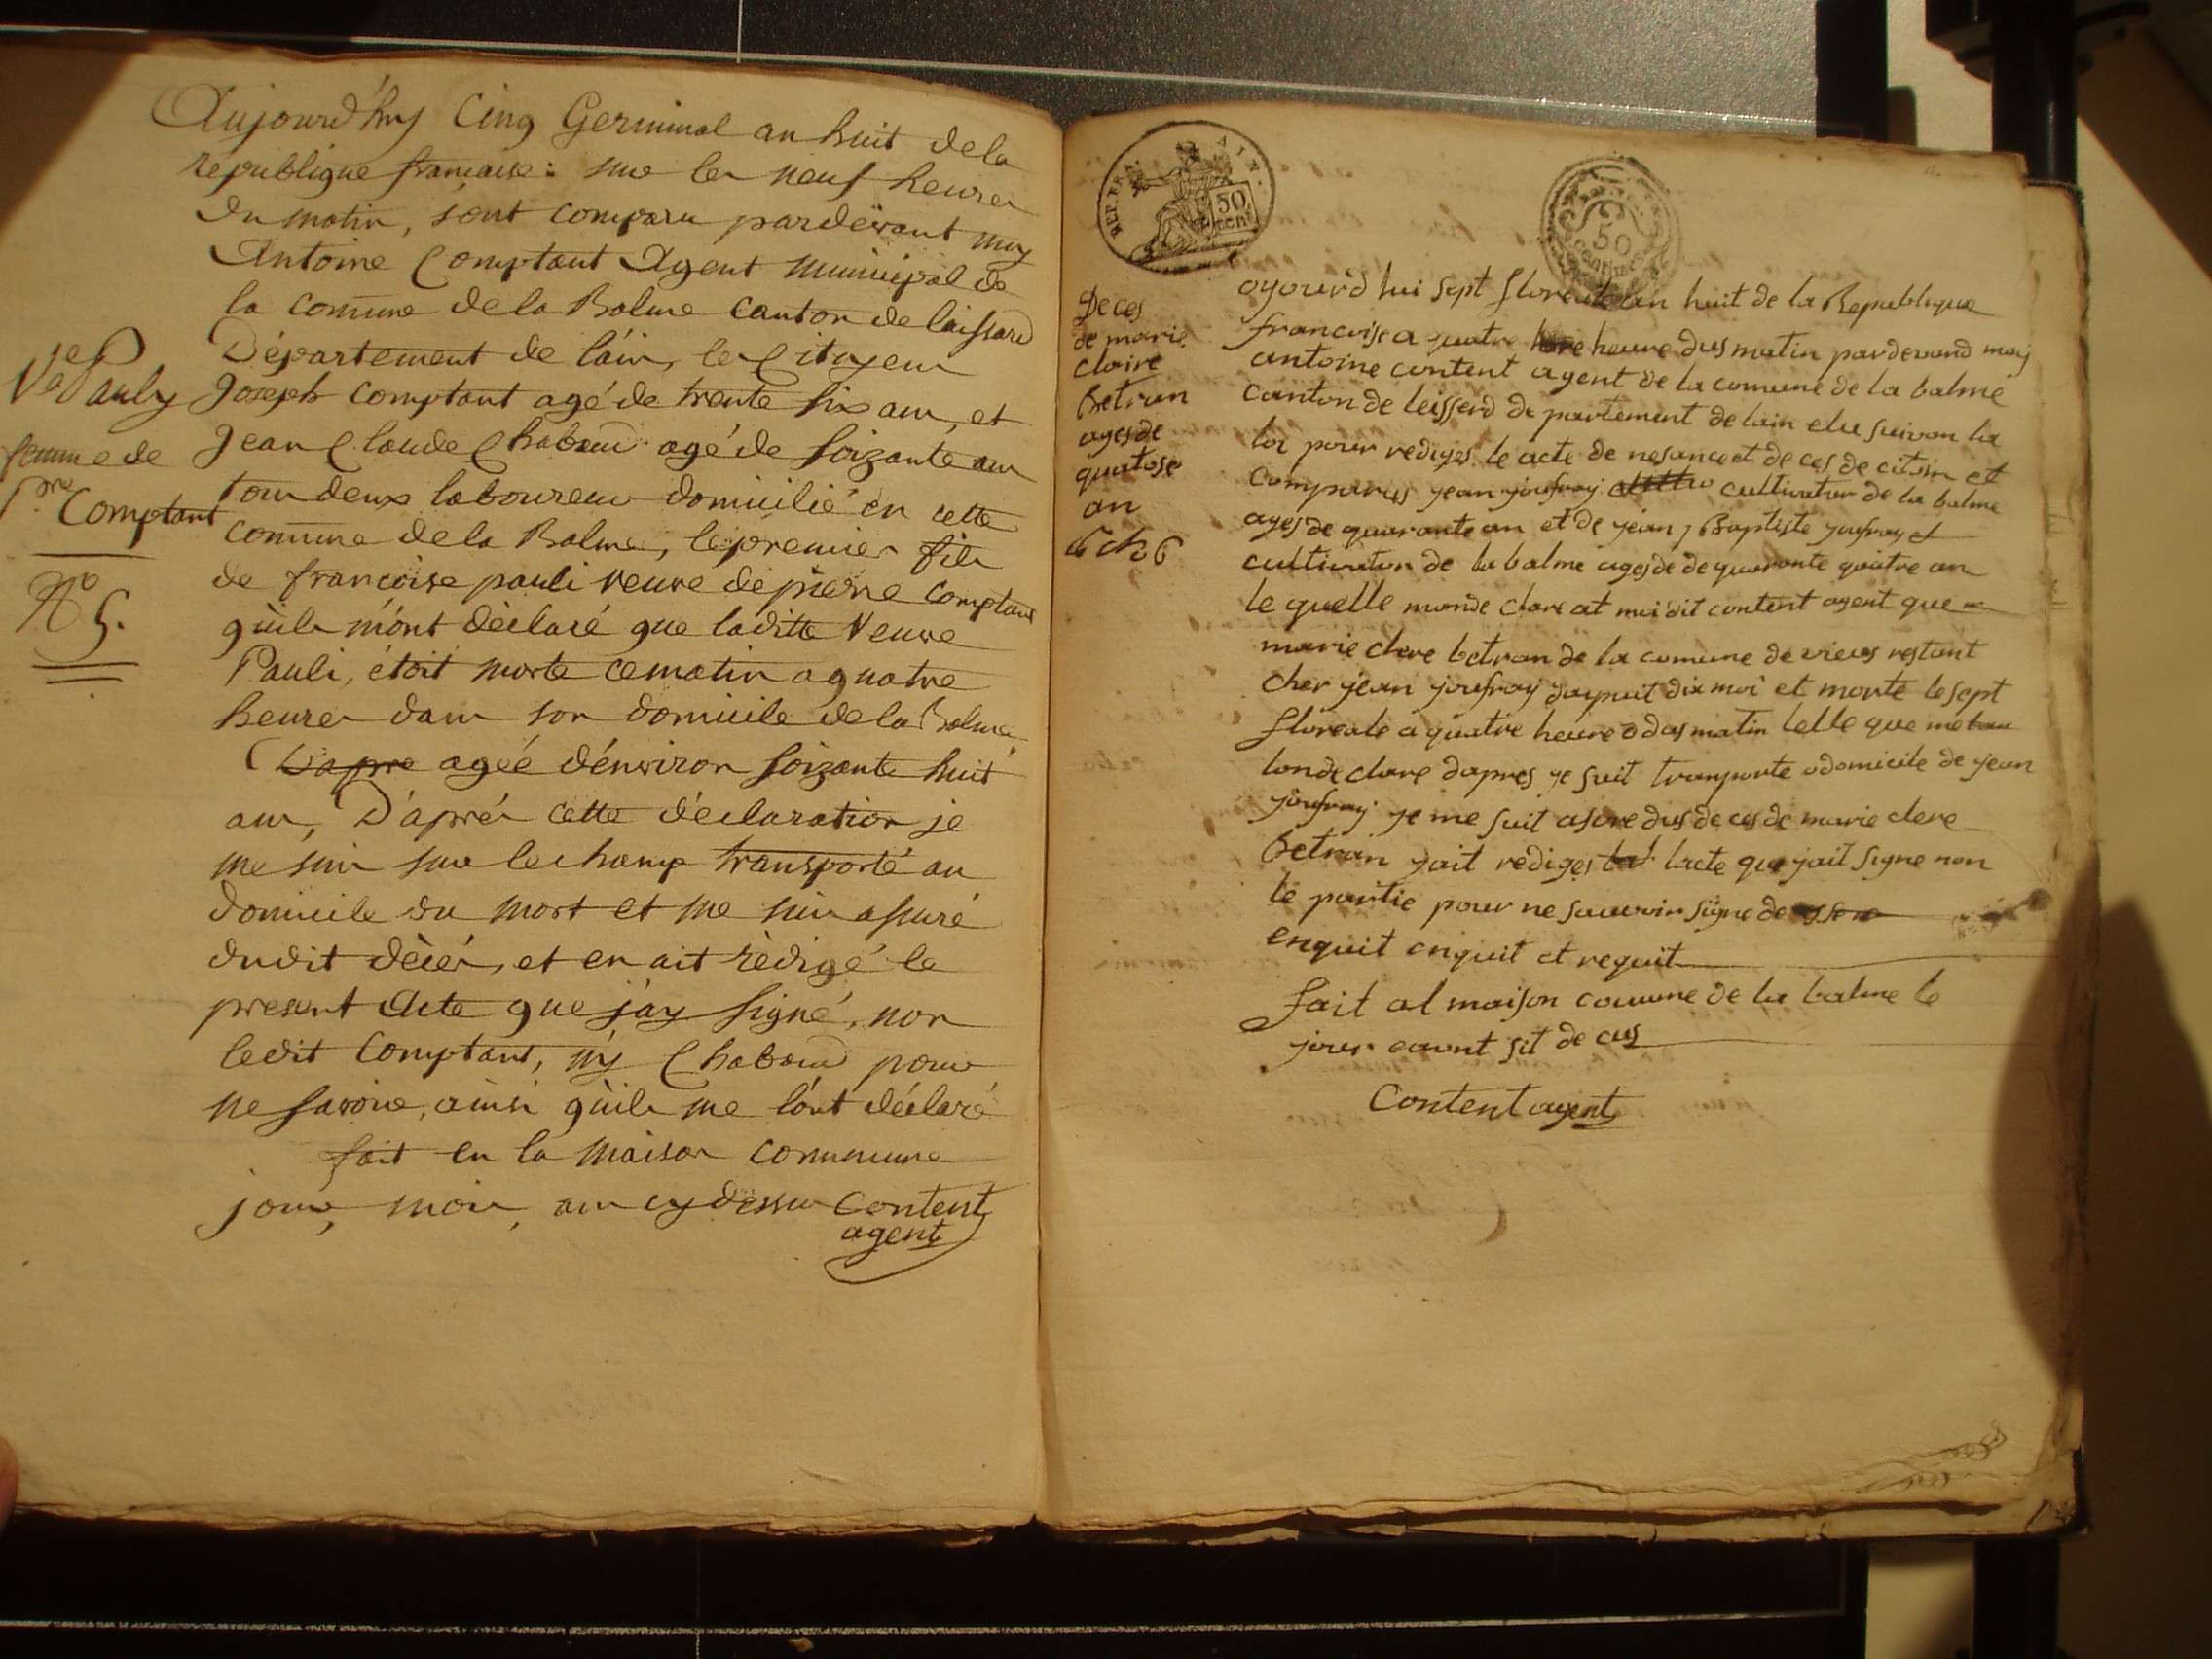 Aujourd'huy Cinq Germinal an huit de la
republique francaise: sur les neuf heures
du matin, sont comparu pardevant moy
Antoine Comptant Agent municipal de
la comune de la Balme canton de laissard
Département de l'ain, les Citoyens
Joseph Comptant agé de trente six ans, et
Jean Claude Chaboud agé de soizante ans
tous deux laboureurs domicilié en cette
comune de la Balme, le premier fils
de francoise pauli veuve de pierre Comptant
qu'ils m'ont déclaré que laditte Veuve
Pauli, étoit morte ce matin a quatre
heures dans son domicile de la Balme
D'apre agéé d'environ soizante huit
ans, D'aprés cette déclaration je
me suis sur le champ transporté au
domicile du mort et me suis assuré
dudit décés, et en ait rédigé le
present Acte que j'ay signé, non
ledit Comptant, n'y Chaboud pour
ne savoire, ainsi qu'ils me l'ont déclaré
fait en la maison commune
jour, mois, an cy dessus Content
agent
Ve Pauly
femme de
Pre Comptant
No 5.
REP. FRA.
AIN.
50
cent
50
centimes
De ces
de marie
claire
Betran
ages de
quatose
an
oyourd hui sept floreale an huit de la Republique
francoise a quatre heure dus matin pardevand moy
antoine content agent de la comune de la balme
canton de leisserd de partement de lain elu suivan la
loi pour rediges le acte de nesance et de ces de citoin et
comparus jean joufroy cultivator de la balme
ages de quarante an et de jean Baptiste joufroy et
cultivator de la balme ages de de quarante quatre an
le quelle monde clare at moi dit content agent que
marie clere betran de la comune de vieus restant
cher jean joufroy daypuit dix moi et morte le sept
floreale a quatre heure o das matin lelle que me
londe clare dapres je suit transporte o domicile de jean
joufroy je me suit asore dus de ces de marie clere
Betran jait rediges lacte que jait signe non
le partie pour ne sauvoir signe de
enquit enquit et requit
fait al maison comune de la balme le
jour eant sit de cus
Content agent